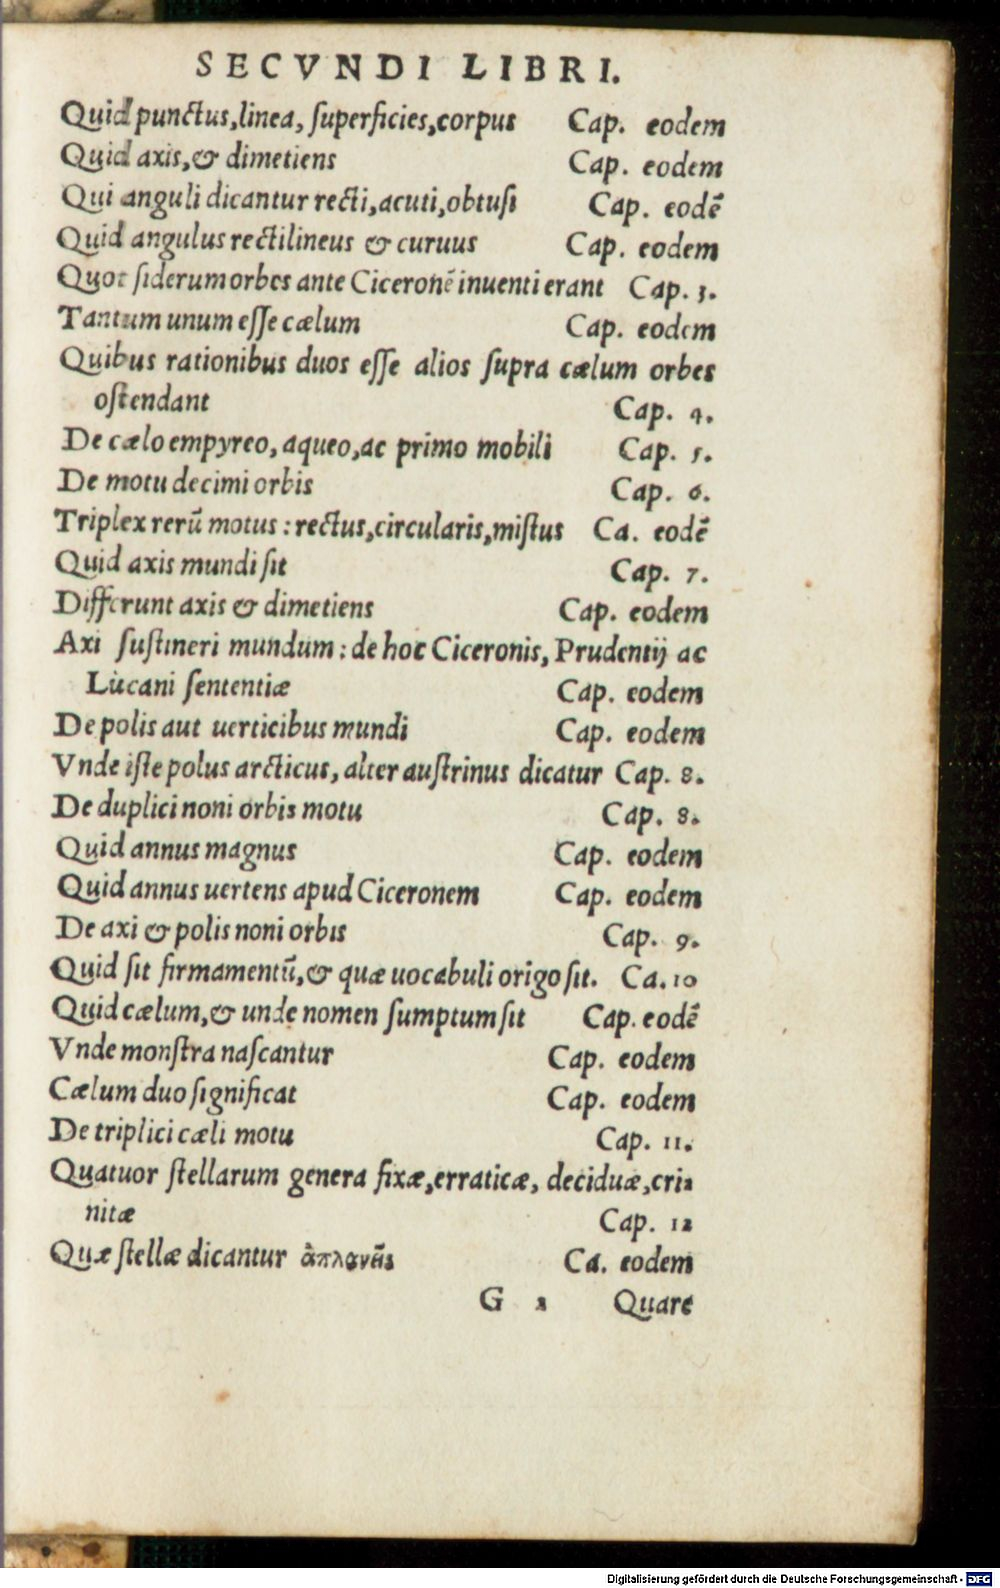 SECVNDI LIBRI.
Quid punctus, linea, ſuperficies, corpus Cap. eodem
Quid axis, & dimetiens Cap. eodem
Qui anguli dicantur recti, acuti, obtuſi Cap. eodē
Quid angulus rectilineus & curuus Cap. eodem
Quot ſiderum orbes ante Ciceronē inuenti erant Cap. 3.
Tantum unum eſſe cælum Cap. eodem
Quibus rationibus duos eſſe alios ſupra cælum orbes
oſtendant Cap. 4.
De cælo empyreo, aqueo, ac primo mobili Cap. 5.
De motu decimi orbis Cap. 6.
Triplex rerū motus: rectus, circularis, miſtus Ca. eodē
Quid axis mundi ſit Cap. 7.
Differunt axis & dimetiens Cap. eodem
Axi ſuſtineri mundum: de hoc Ciceronis, Prudentij ac
Lucani ſententiæ Cap. eodem
De polis aut uerticibus mundi Cap. eodem
Vnde iſte polus arcticus, alter auſtrinus dicatur Cap. 8.
De duplici noni orbis motu Cap. 8.
Quid annus magnus Cap. eodem
Quid annus uertens apud Ciceronem Cap. eodem
De axi & polis noni orbis Cap. 9.
Quid ſit firmamentū, & quæ uocabuli origo ſit. Ca. 10
Quid cælum, & unde nomen ſumptum ſit Cap. eodē
Vnde monſtra naſcantur Cap. eodem
Cælum duo ſignificat Cap. eodem
De triplici cæli motu Cap. 11.
Quatuor ſtellarum genera fixæ, erraticæ, deciduæ, cri-
nitæ Cap. 12
Quæ ſtellæ dicantur ἀπλανεῖς Ca. eodem
G 2 Quare
Digitalisierung gefördert durch die Deutsche Forschungsgemeinschaft - DFG